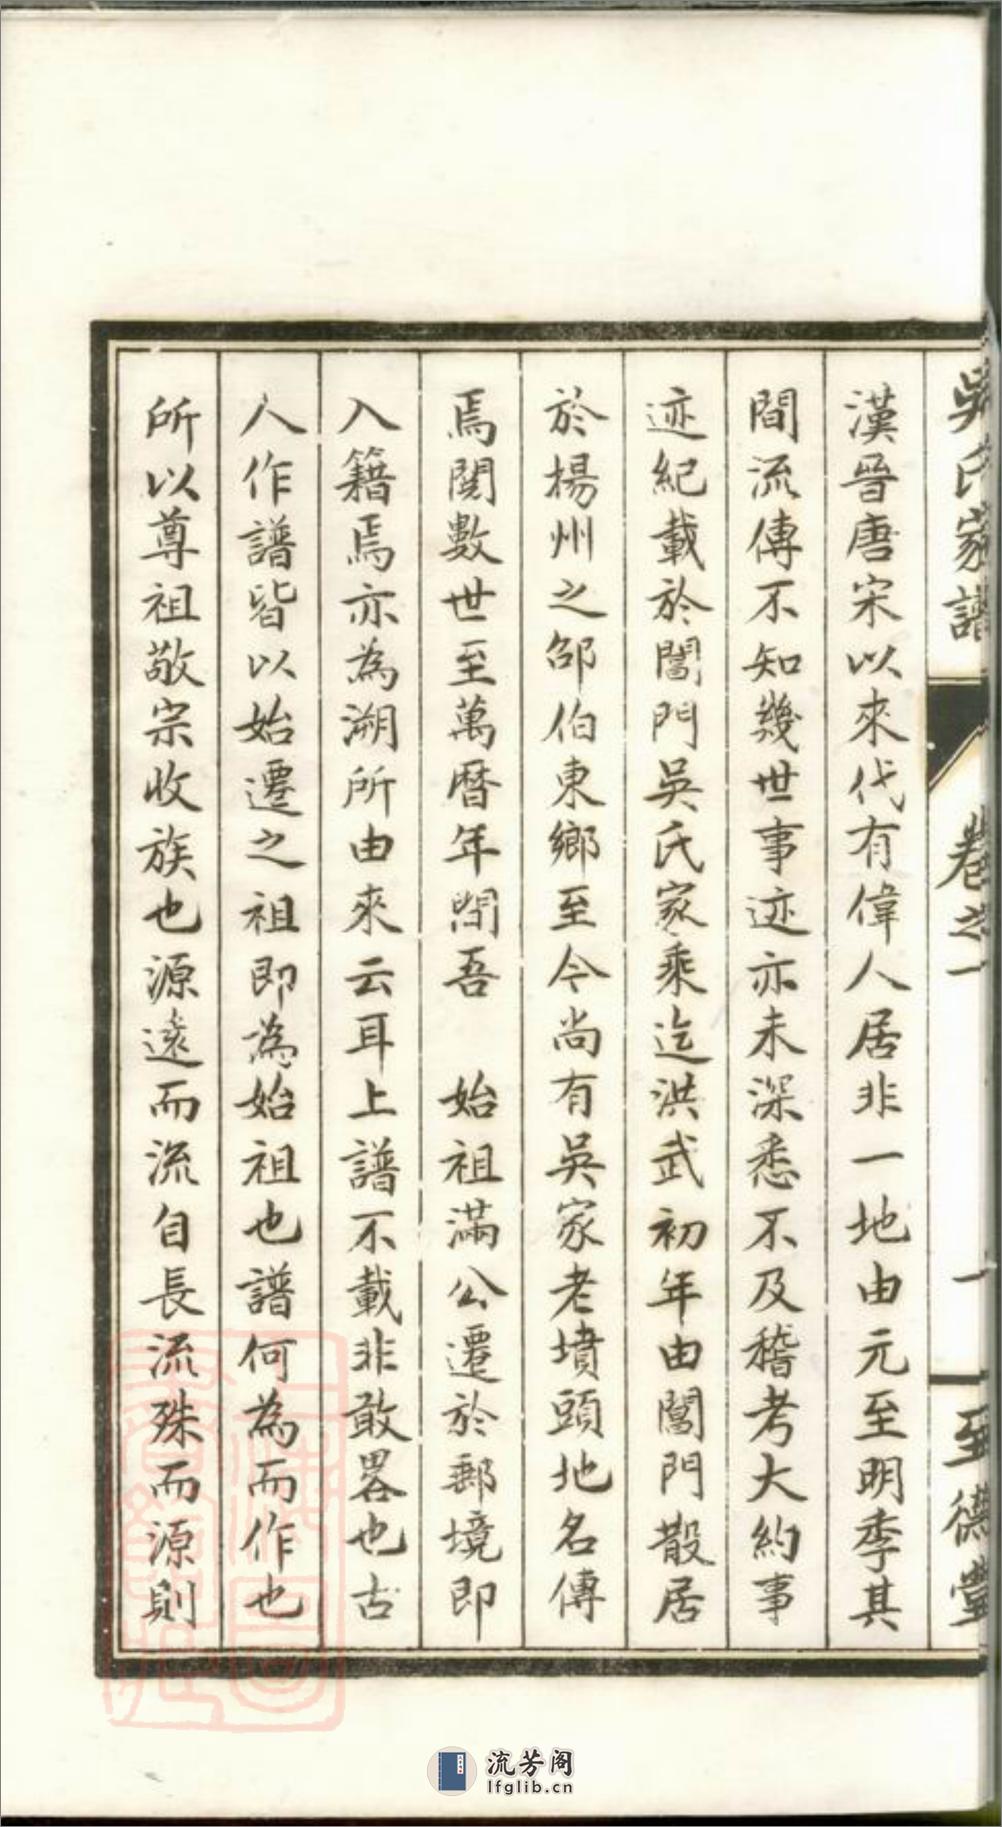 吳氏家譜 卷之一 一 至德堂
漢晉唐宋以來代有偉人居非一地由元至明季其
間流傳不知幾世事迹亦未深悉不及稽考大約事
迹紀載於閶門吳氏家乘迄洪武初年由閶門散居
於楊州之邵伯東鄉至今尚有吳家老墳頭地名傳
焉閱數世至萬曆年間吾 始祖滿公遷於鄞境即
入籍焉亦為溯所由來云耳上譜不載非敢畧也古
人作譜皆以始遷之祖即為始祖也譜何為而作也
所以尊祖敬宗收族也源遠而流自長流殊而源則
流芳阁
lfglib.cn